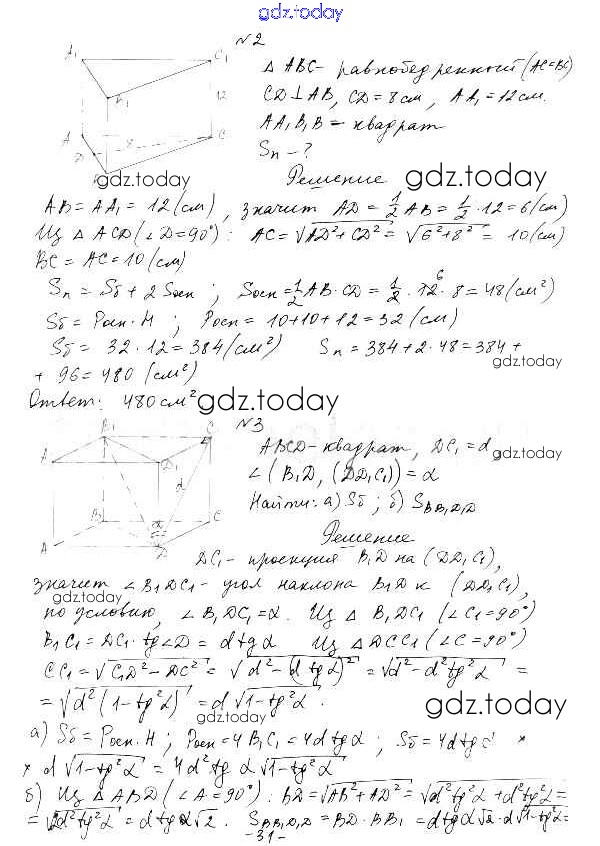 gdz.today
N2
A₁ C₁ B₁ 12 A D 8 C B
△ ABC - равнобедренный (AC=BC)
CD⊥AB, CD=8см, AA₁=12см.
AA₁B₁B - квадрат
Sп - ?
gdz.today
Решение gdz.today
AB=AA₁=12(см), значит AD=1/2 AB=1/2·12=6(см)
Из △ ACD (∠D=90°): AC=√AD²+CD²=√6²+8²=10(см)
BC=AC=10(см)
Sп=Sб+2Sосн; Sосн=1/2 AB·CD=1/2·12·8=48(см²)
Sб=Pосн·H; Pосн=10+10+12=32(см)
Sб=32·12=384(см²) Sп=384+2·48=384+
gdz.today
+96=480(см²)
Ответ: 480см² gdz.today
N3
B₁ C₁ A₁ D₁ d B C A D
ABCD - квадрат, DC₁=d
gdz.today
∠(B₁D, (DD₁C₁))=α
Найти: а) Sб; б) S BB₁D₁D
Решение
DC₁ - проекция B₁D на (DD₁C₁),
значит ∠B₁DC₁ - угол наклона B₁D к (DD₁C₁),
gdz.today
по условию, ∠B₁DC₁=α. Из △ B₁DC₁ (∠C₁=90°)
B₁C₁=DC₁·tg∠D=d tgα Из △DCC₁ (∠C=90°)
CC₁=√C₁D²-DC²=√d²-(d tgα)²=√d²-d²tg²α=
=√d²(1-tg²α)=d√1-tg²α.
gdz.today gdz.today
а) Sб=Pосн·H; Pосн=4B₁C₁=4d tgα; Sб=4d tgα ×
× d√1-tg²α=4d²tgα√1-tg²α
б) Из △ABD (∠A=90°): BD=√AB²+AD²=√d²tg²α+d²tg²α=
=√2d²tg²α=d tgα√2. S BB₁D₁D=BD·BB₁=d tgα√2·d√1-tg²α=
-31-